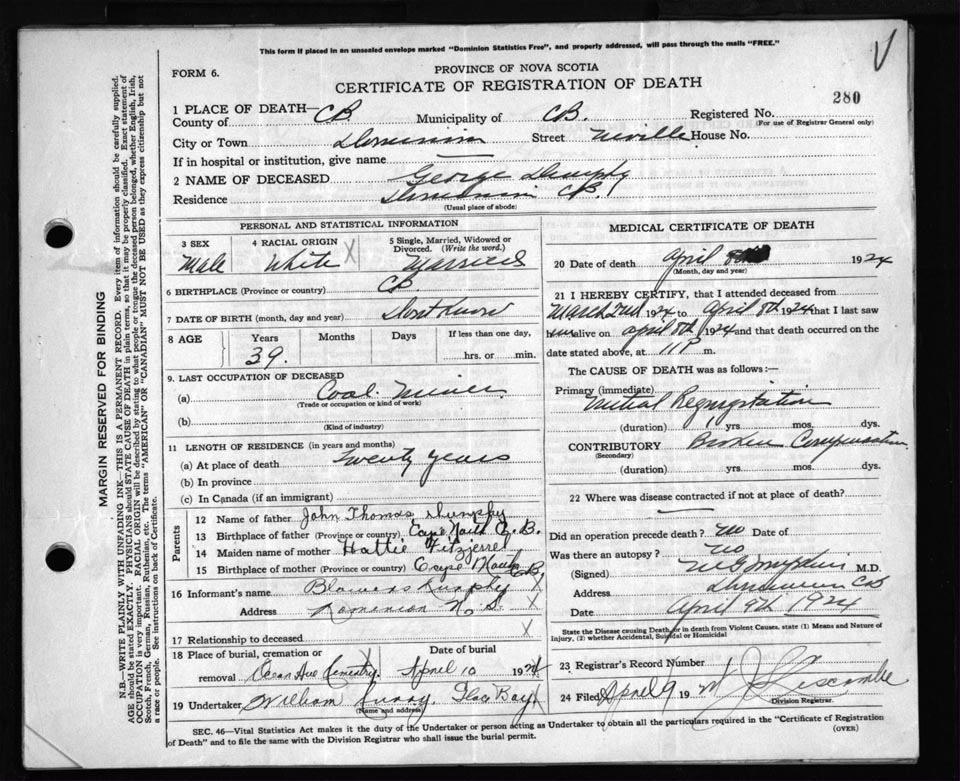 This form if placed in an unsealed envelope marked "Dominion Statistics Free", and properly addressed, will pass through the mails "FREE."
FORM 6.
PROVINCE OF NOVA SCOTIA
CERTIFICATE OF REGISTRATION OF DEATH
280
1 PLACE OF DEATH—
County of CB Municipality of CB. Registered No.
(For use of Registrar General only)
City or Town Dominion Street Neville House No.
If in hospital or institution, give name
2 NAME OF DECEASED George Dunphy
Residence Dominion CB.
(Usual place of abode)
PERSONAL AND STATISTICAL INFORMATION
3 SEX Male
4 RACIAL ORIGIN White X
5 Single, Married, Widowed or Divorced. (Write the word.) Married
6 BIRTHPLACE (Province or country) CB
7 DATE OF BIRTH (month, day and year) Dont Know
8 AGE Years Months Days If less than one day,
39. hrs. or min.
9. LAST OCCUPATION OF DECEASED
(a) Coal Miner
(Trade or occupation or kind of work)
(b)
(Kind of industry)
11 LENGTH OF RESIDENCE (in years and months)
(a) At place of death twenty years
(b) In province
(c) In Canada (if an immigrant)
Parents
12 Name of father John Thomas Dunphy
13 Birthplace of father (Province or country) Cape North C. B.
14 Maiden name of mother Hattie Fitzjerrel
15 Birthplace of mother (Province or country) Cape North CB
16 Informant's name X
Address Dominion N. S. X
17 Relationship to deceased X
18 Place of burial, cremation or removal Ocean Ave Cemetry Date of burial April 10 1924
19 Undertaker William Glace Bay
(Name and address)
MEDICAL CERTIFICATE OF DEATH
20 Date of death April 8th 1924
(Month, day and year)
21 I HEREBY CERTIFY, that I attended deceased from
March 2nd 1924 to April 8th 1924 that I last saw
him alive on april 8th 1924 and that death occurred on the
date stated above, at 11 P m.
The CAUSE OF DEATH was as follows:—
Primary (immediate) Mitral Regurgitation
(duration) yrs. mos. dys.
CONTRIBUTORY Broken Compensation
(Secondary)
(duration) yrs. mos. dys.
22 Where was disease contracted if not at place of death?
Did an operation precede death? no Date of
Was there an autopsy? no
(Signed) M.D.
Address Dominion CB
Date April 9th 1924
State the Disease causing Death, or in death from Violent Causes, state (1) Means and Nature of
Injury, (2) whether Accidental, Suicidal or Homicidal
23 Registrar's Record Number
24 Filed April 9 1924 Liscombe
Division Registrar.
SEC. 46—Vital Statistics Act makes it the duty of the Undertaker or person acting as Undertaker to obtain all the particulars required in the "Certificate of Registration
of Death" and to file the same with the Division Registrar who shall issue the burial permit.
(OVER)
MARGIN RESERVED FOR BINDING
N.B.—WRITE PLAINLY WITH UNFADING INK—THIS IS A PERMANENT RECORD. Every item of information should be carefully supplied.
AGE should be stated EXACTLY. PHYSICIANS should STATE CAUSE OF DEATH in plain terms, so that it may be properly classified. Exact statement of
OCCUPATION is very important. RACIAL ORIGIN will be described by stating to what people or tongue the deceased person belonged, whether English, Irish,
Scotch, French, German, Russian, Ruthenian, etc. The terms "AMERICAN" or "CANADIAN" MUST NOT BE USED as they express citizenship but not
a race or people. See instructions on back of Certificate.